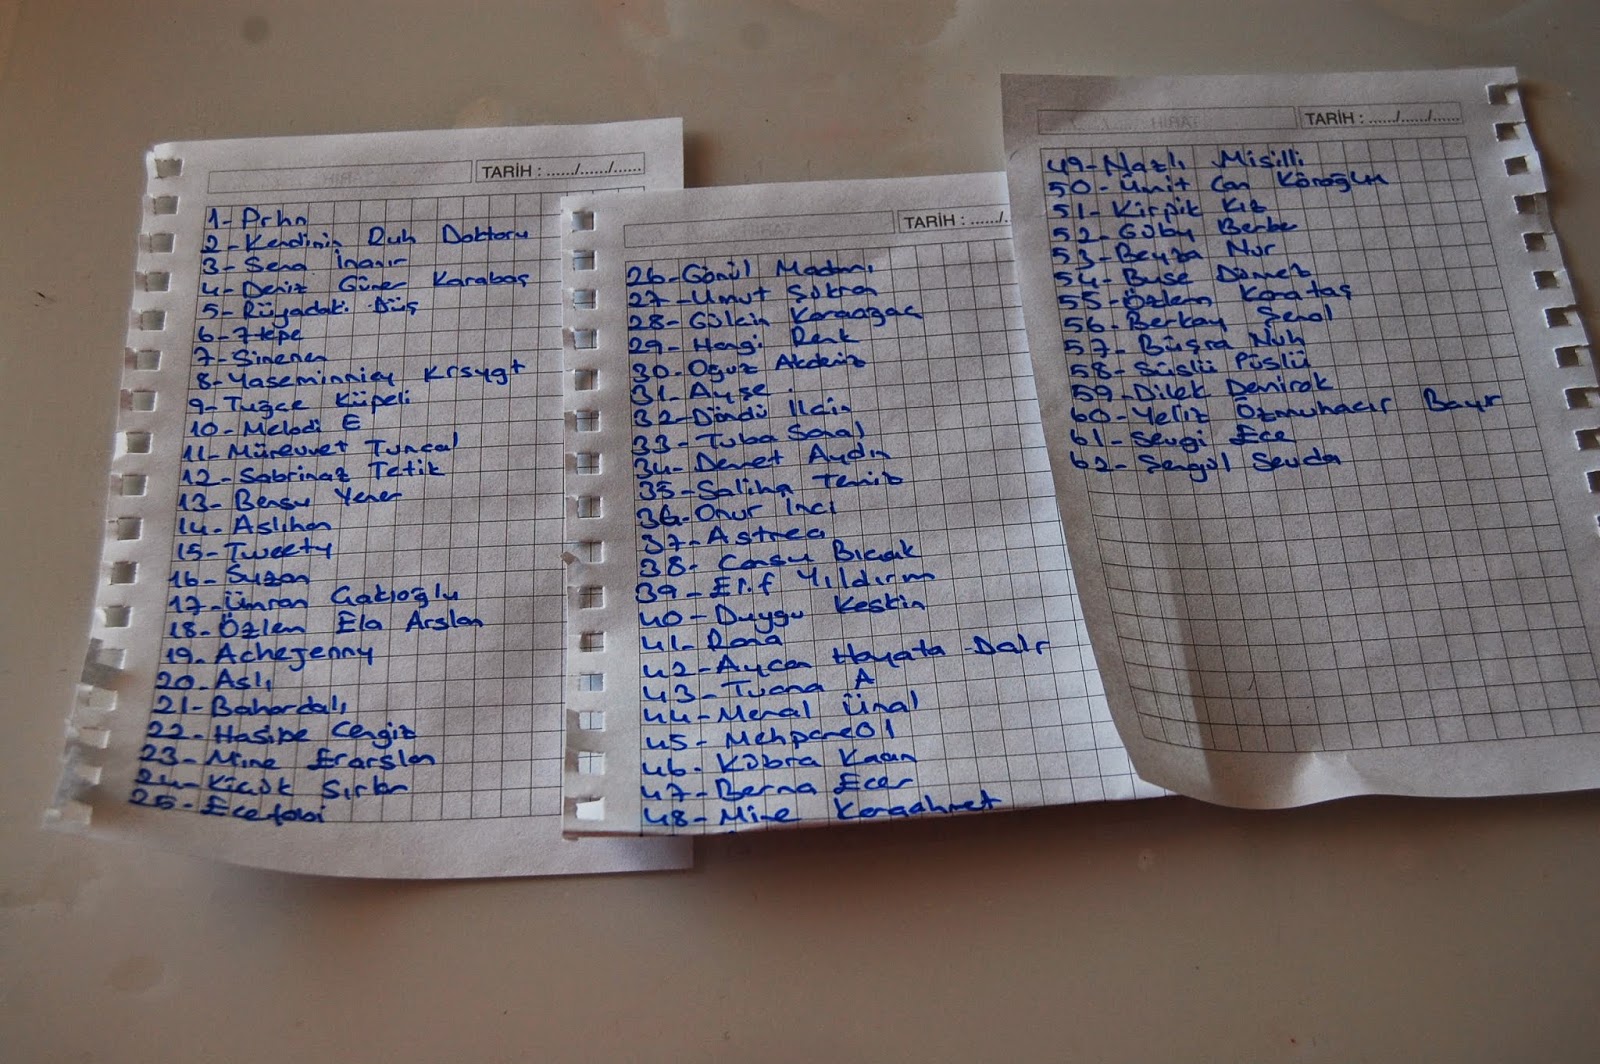 TARİH : ....../....../......
1- Prhn
2- Kendinin Ruh Doktoru
3- Sena İnanır
4- Deniz Güner Karabaş
5- Rüyadaki Düş
6- 7tepe
7- Sinenen
8- Yaseminniey Krsygt
9- Tuğçe Küpeli
10- Melodi E
11- Mürevvet Tuncal
12- Sabrinaz Tetik
13- Bensu Yener
14- Aslıhan
15- Tweety
16- Suzan
17- Ümran Çakıoğlu
18- Özlem Ela Arslan
19- Achejenny
20- Aslı
21- Bahardalı
22- Hasine Cengiz
23- Mine Erarslan
24- Küçük Sırlar
25- Ecefobi
TARİH : ....../.
26- Gönül Madamı
27- Umut Şükran
28- Gülçin Karaağaç
29- Hangi Renk
30- Oğuz Akdeniz
31- Ayşe .
32- Döndü Ilcin
33- Tuba Sanal
34- Demet Aydın
35- Saliha Temib
36- Onur İnci
37- Astrea
38- Cansu Bıçak
39- Elif Yıldırım
40- Duygu Keskin
41- Rana
42- Aycan Hayata Dair
43- Tuana A
44- Meral Ünal
45- Mehpare01
46- Kübra Kaan
47- Berna Ecer
48- Mine Karaahmet
TARİH : ....../....../......
49- Nazlı Misilli
50- Ümit Can Köroğlu
51- Kirpik Kız
52- Güby Berber
53- Beyza Nur
54- Buse Dönmez
55- Özlem Karataş
56- Berkay Şenol
57- Büşra Nuh
58- Süslü Püslü
59- Dilek Demirok
60- Yeliz Özmuhacır Bayır
61- Sevgi Ece
62- Şengül Sevda